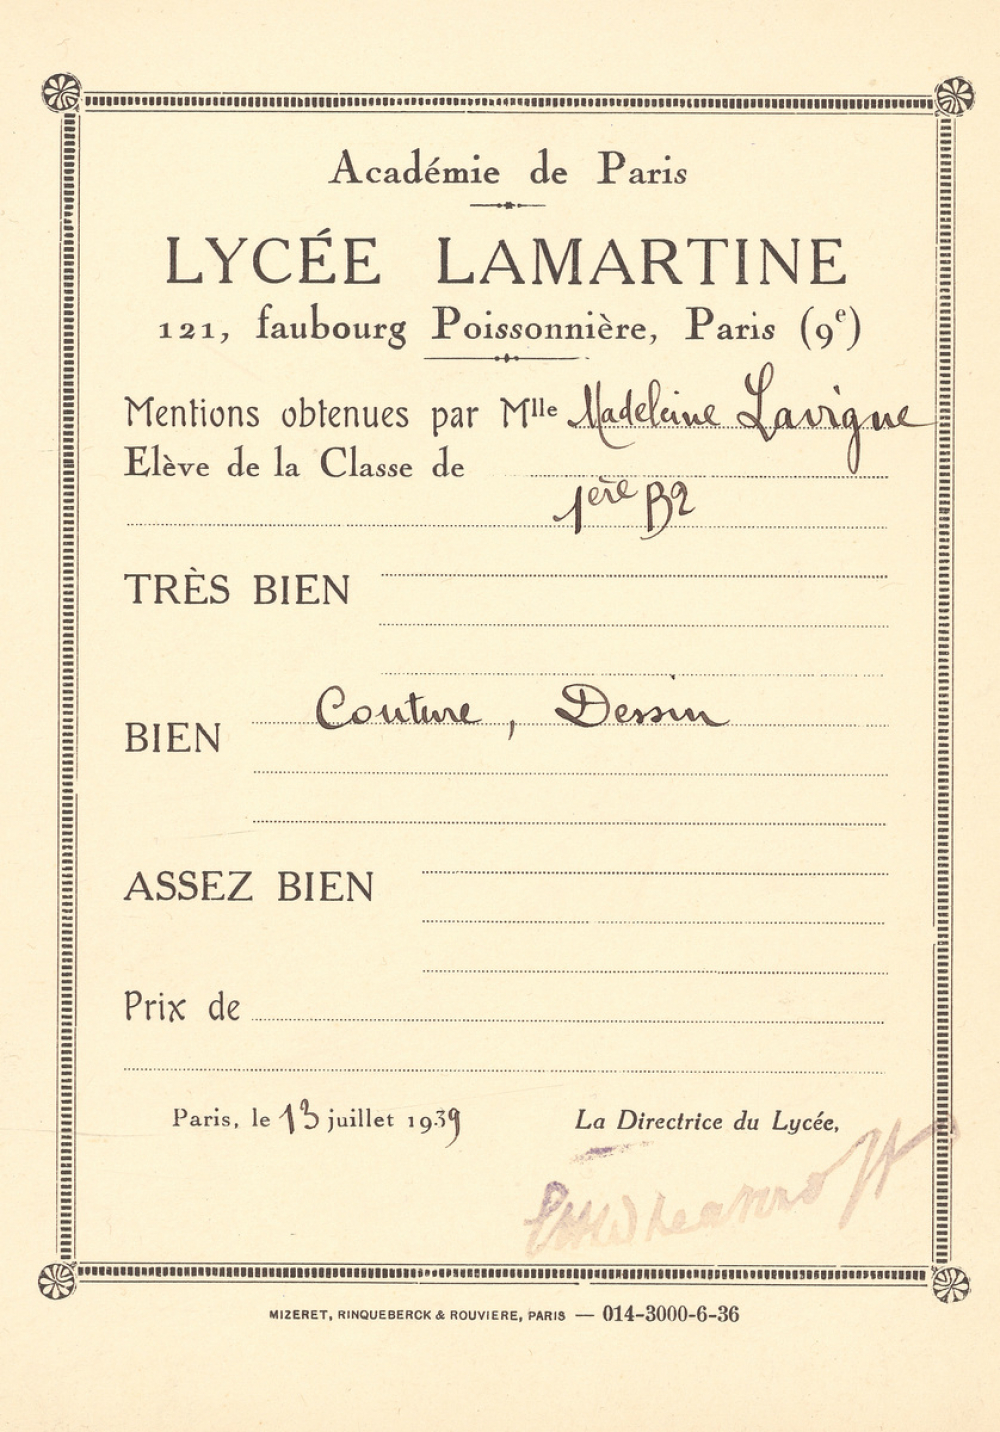 Académie de Paris
LYCÉE LAMARTINE
121, faubourg Poissonnière, Paris (9e)
Mentions obtenues par Mlle Madeleine Lavigne
Elève de la Classe de
1ère B2
TRÈS BIEN
BIEN Couture, Dessin
ASSEZ BIEN
Prix de
Paris, le 13 juillet 1939
La Directrice du Lycée,
MIZERET, RINQUEBERCK & ROUVIERE, PARIS — 014-3000-6-36